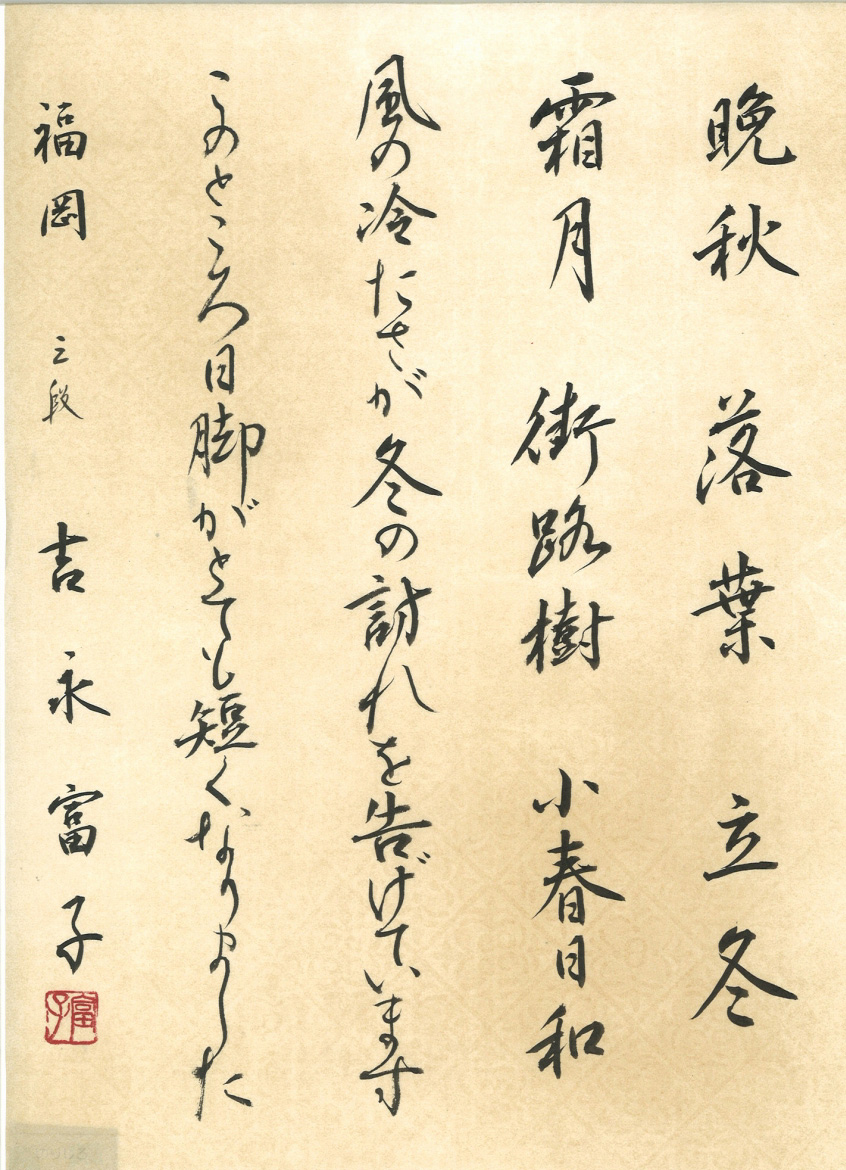 晩秋　落葉　立冬
霜月　街路樹　小春日和
風の冷たさが冬の訪れを告げています
このところ日脚がとても短くなりました
福岡　三段　吉永富子
富子